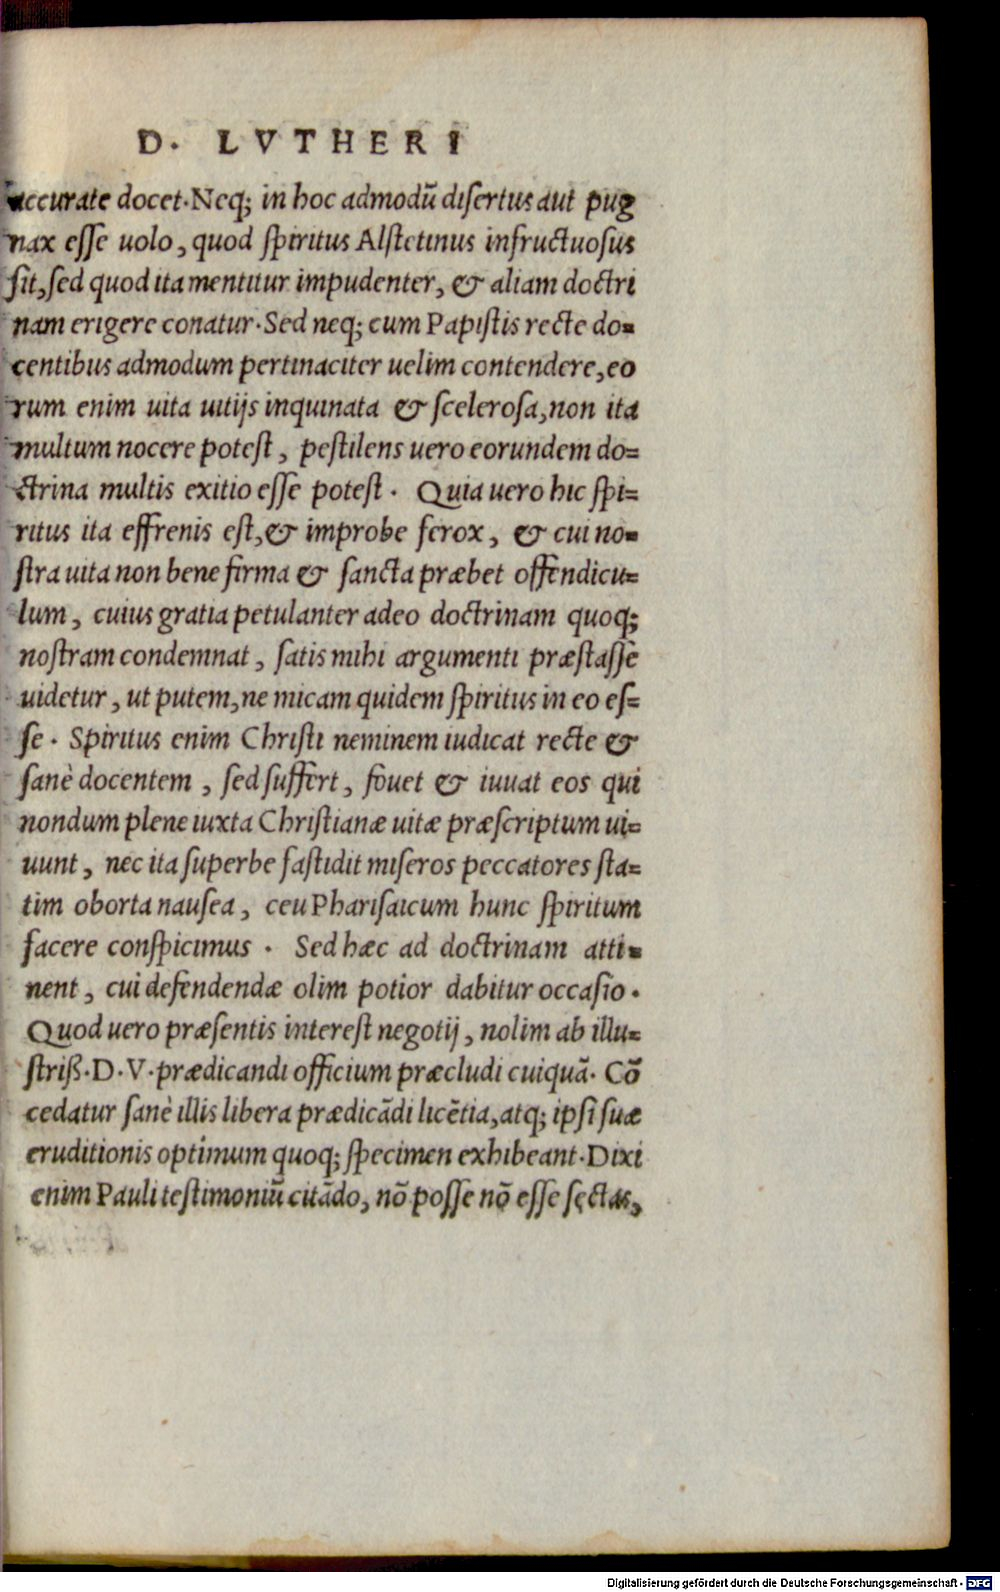 D. LVTHERI
accurate docet. Neq; in hoc admodũ disertus aut pug
nax esse uolo, quod spiritus Alstetinus infructuosus
sit, sed quod ita mentitur impudenter, & aliam doctri
nam erigere conatur. Sed neq; cum Papistis recte do=
centibus admodum pertinaciter uelim contendere, eo
rum enim uita uitijs inquinata & scelerosa, non ita
multum nocere potest, pestilens uero eorundem do=
ctrina multis exitio esse potest. Quia uero hic spi=
ritus ita effrenis est, & improbe ferox, & cui no=
stra uita non bene firma & sancta præbet offendicu=
lum, cuius gratia petulanter adeo doctrinam quoq;
nostram condemnat, satis mihi argumenti præstasse
uidetur, ut putem, ne micam quidem spiritus in eo es=
se. Spiritus enim Christi neminem iudicat recte &
sanè docentem, sed suffert, fouet & iuuat eos qui
nondum plene iuxta Christianæ uitæ præscriptum ui=
uunt, nec ita superbe fastidit miseros peccatores sta=
tim oborta nausea, ceu Pharisaicum hunc spiritum
facere conspicimus. Sed hæc ad doctrinam atti=
nent, cui defendendæ olim potior dabitur occasio.
Quod uero præsentis interest negotij, nolim ab illu=
striß. D. V. prædicandi officium præcludi cuiquã. Cõ
cedatur sanè illis libera prædicãdi licẽtia, atq; ipsi suæ
eruditionis optimum quoq; specimen exhibeant. Dixi
enim Pauli testimoniũ citãdo, nõ posse nõ esse sectas,
Digitalisierung gefördert durch die Deutsche Forschungsgemeinschaft - DFG